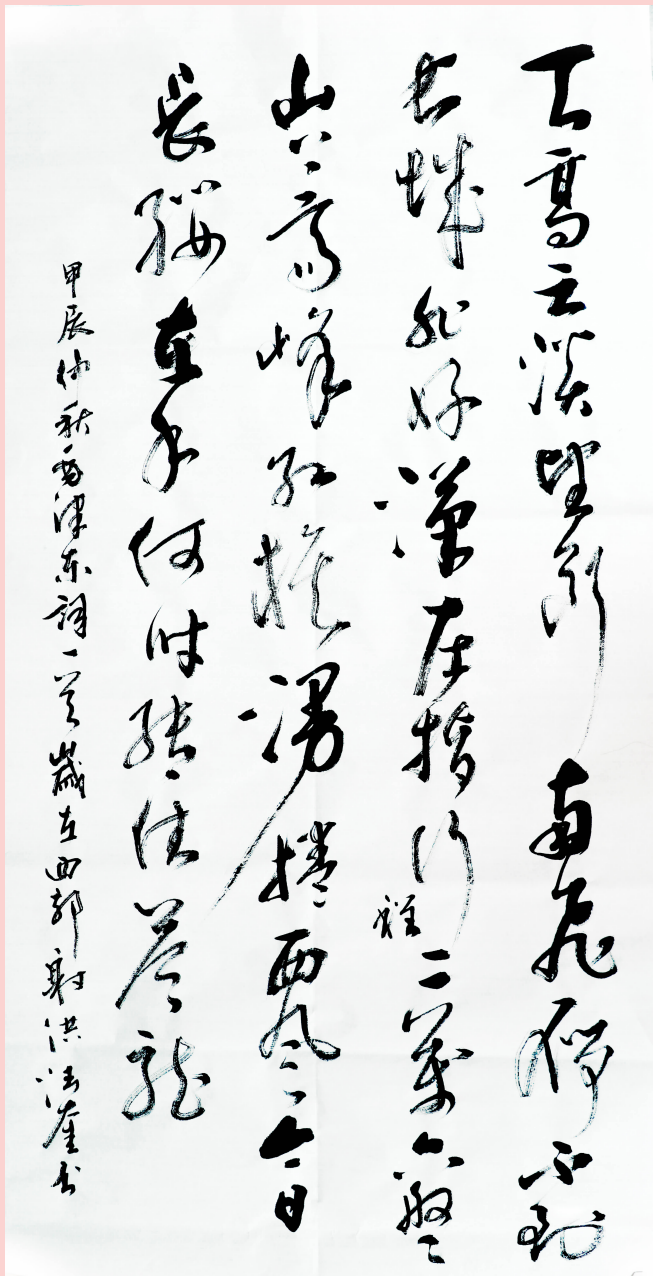 天高云淡望断南飞雁不到
长城非好漢屈指行程二萬六盤
山上高峰红旗漫捲西風今日
長缨在手何时缚住苍龙
甲辰仲秋毛泽东词一首歲在西部射洪法奎书